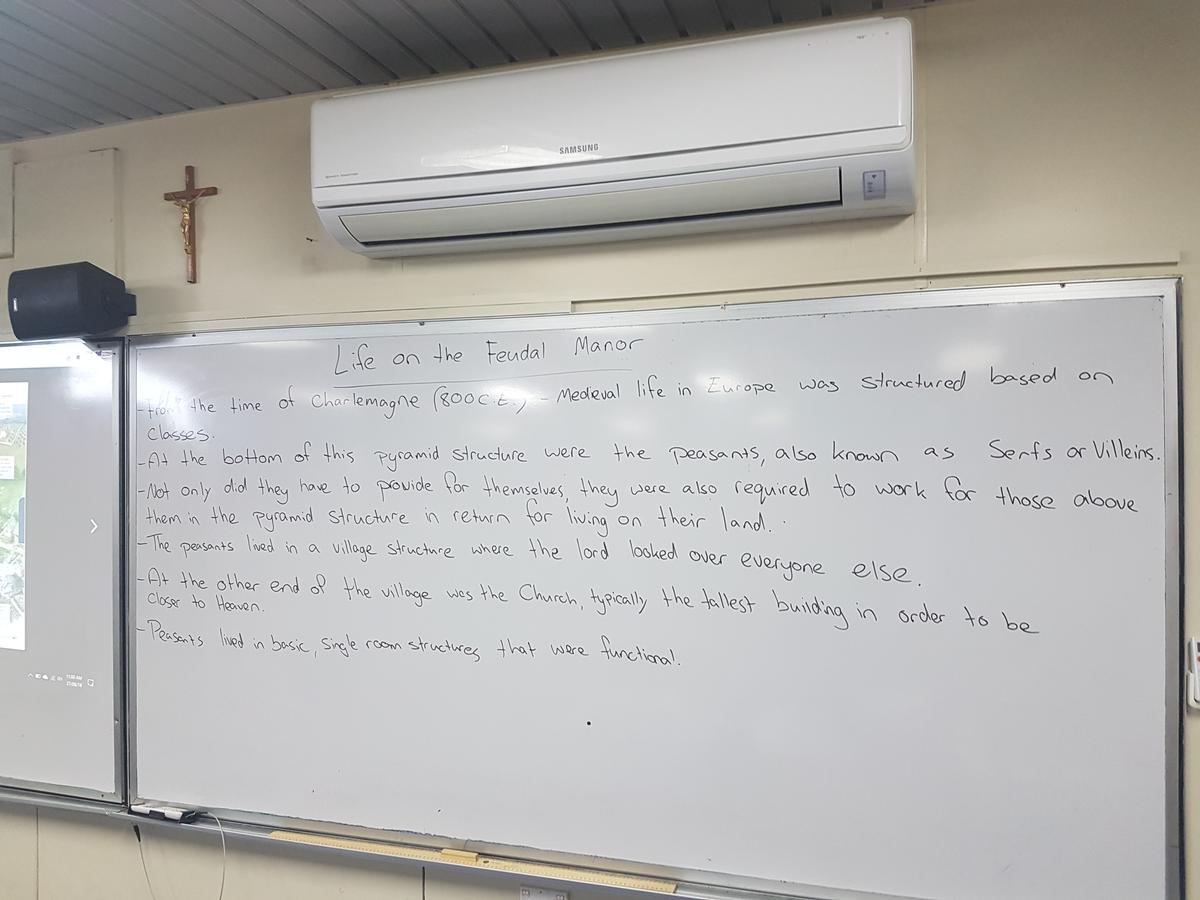 SAMSUNG
Life on the Feudal Manor
- From the time of Charlemagne (800 C.E.) - Medieval life in Europe was structured based on
classes.
- At the bottom of this pyramid structure were the peasants, also known as Serfs or Villeins.
- Not only did they have to provide for themselves, they were also required to work for those above
them in the pyramid structure in return for living on their land.
- The peasants lived in a village structure where the lord looked over everyone else.
- At the other end of the village was the Church, typically the tallest building in order to be
closer to Heaven.
- Peasants lived in basic, single room structures that were functional.